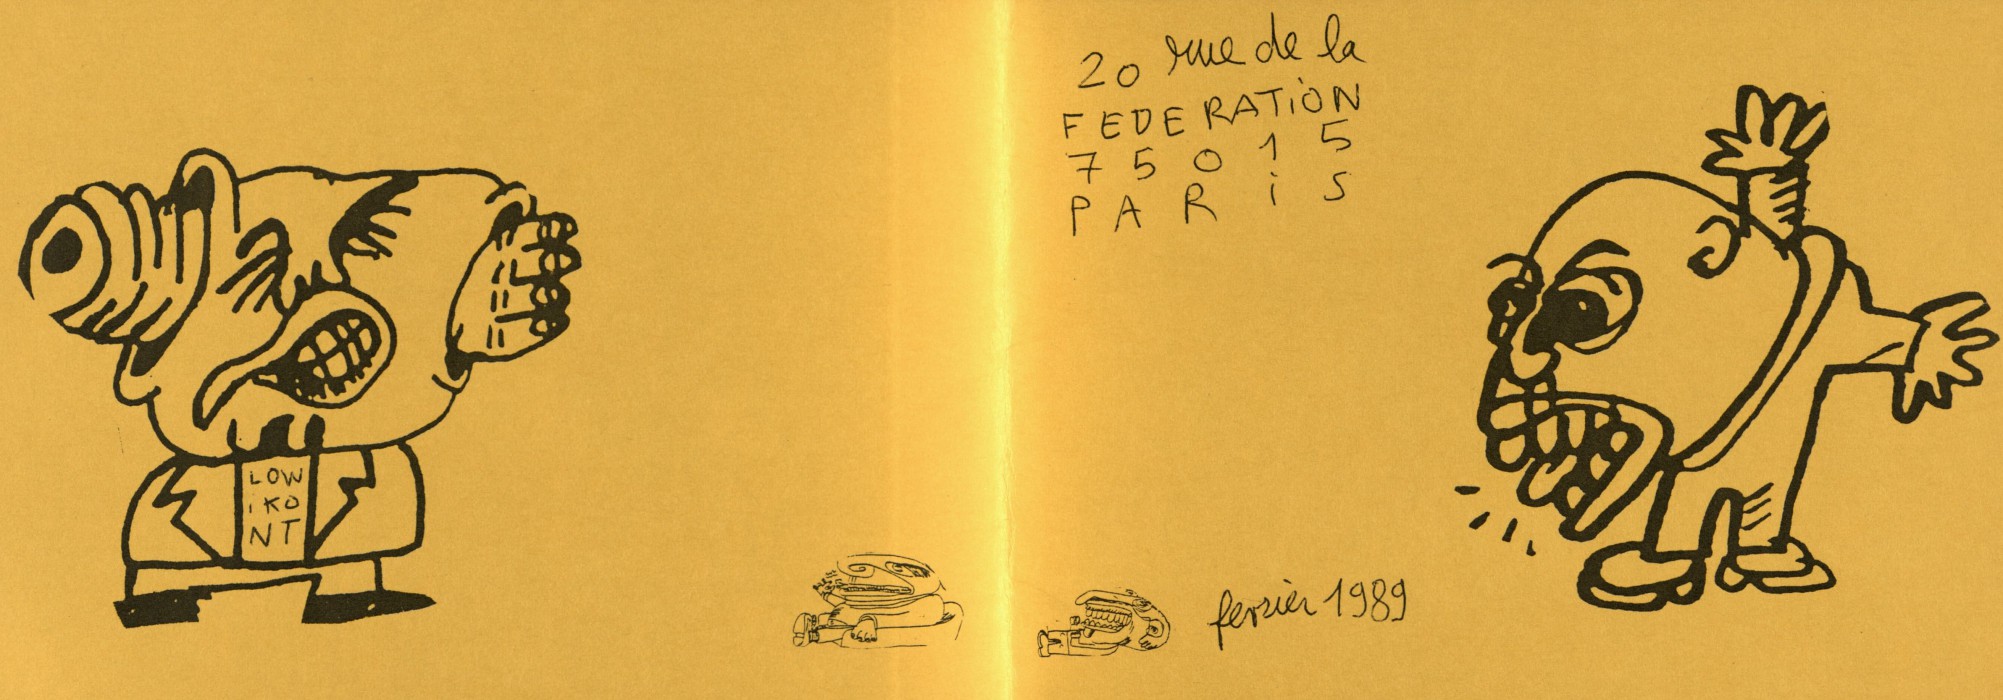 LOW
iKO
NT
20 rue de la
FEDERATiON
75015
PARiS
fevrier 1989